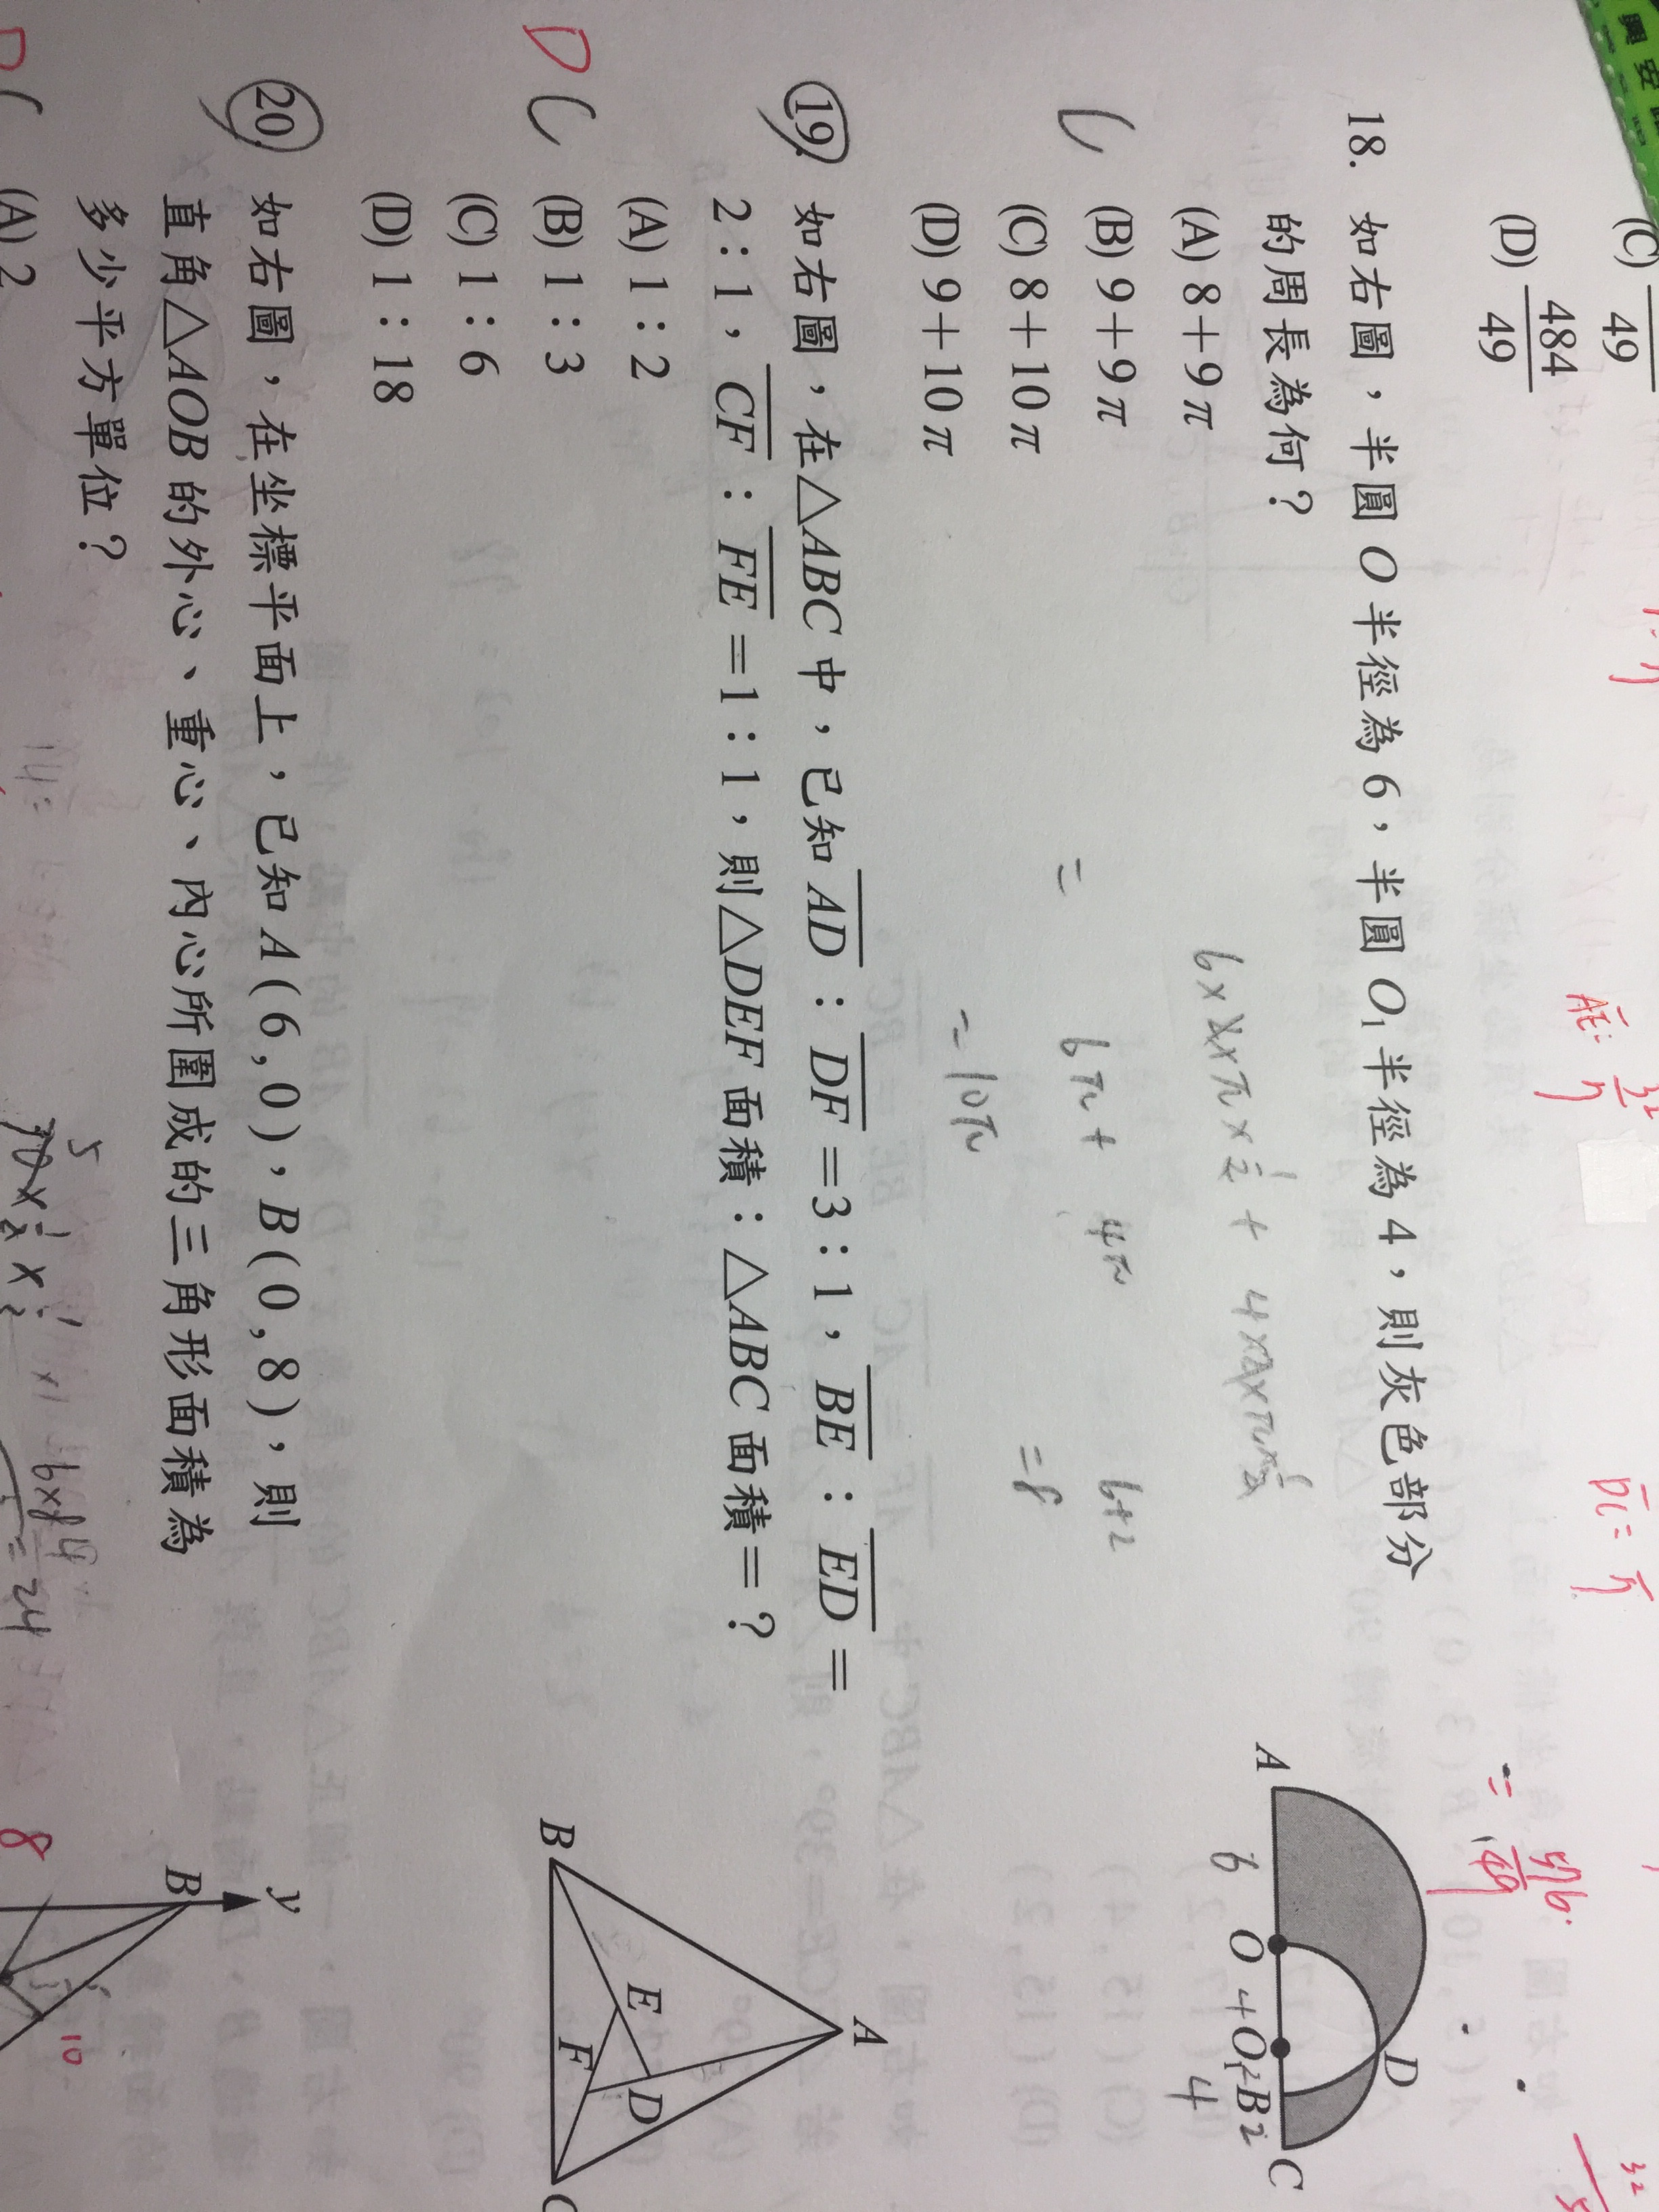 興安
(C) 49
(D) 484/49
AE: 32/7
18. 如右圖，半圓O半徑為6，半圓O₁半徑為4，則灰色部分
的周長為何？
(A) 8＋9π
(B) 9＋9π
(C) 8＋10π
(D) 9＋10π
C
6×2×π×1/2 + 4×2×π×1/2
= 6π + 4π
= 10π
6+2
=8
A 6 O 4 O₁ 2 B 2 C
D
4
19. 如右圖，在△ABC中，已知AD：DF＝3：1，BE：ED＝
2：1，CF：FE＝1：1，則△DEF面積：△ABC面積＝？
(A) 1：2
(B) 1：3
(C) 1：6
(D) 1：18
D C
A
E
D
F
B
C
20. 如右圖，在坐標平面上，已知A(6,0)，B(0,8)，則
直角△AOB的外心、重心、內心所圍成的三角形面積為
多少平方單位？
(A) 2
y
B
8
10
=24